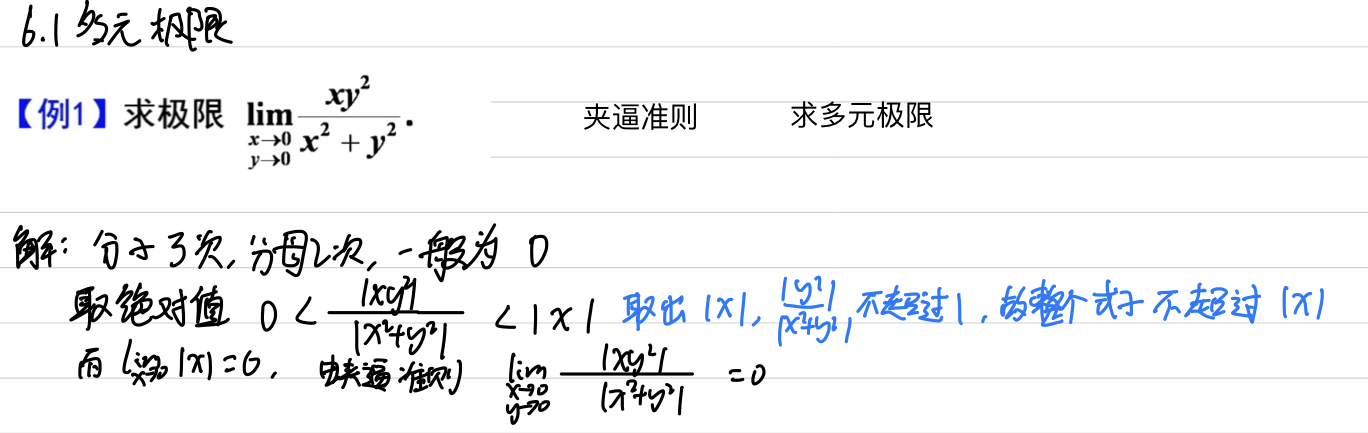 6.1 多元极限
【例1】求极限 lim x→0 y→0 xy²/(x² + y²). 夹逼准则 求多元极限
解: 分子3次, 分母2次, 一般为 0
取绝对值 0 < |xy²|/|x²+y²| < |x| 取出 |x|, |y²|/|x²+y²| 不超过1, 故整个式子不超过 |x|
而 lim x→0 |x| = 0, 由夹逼准则 lim x→0 y→0 |xy²|/|x²+y²| = 0